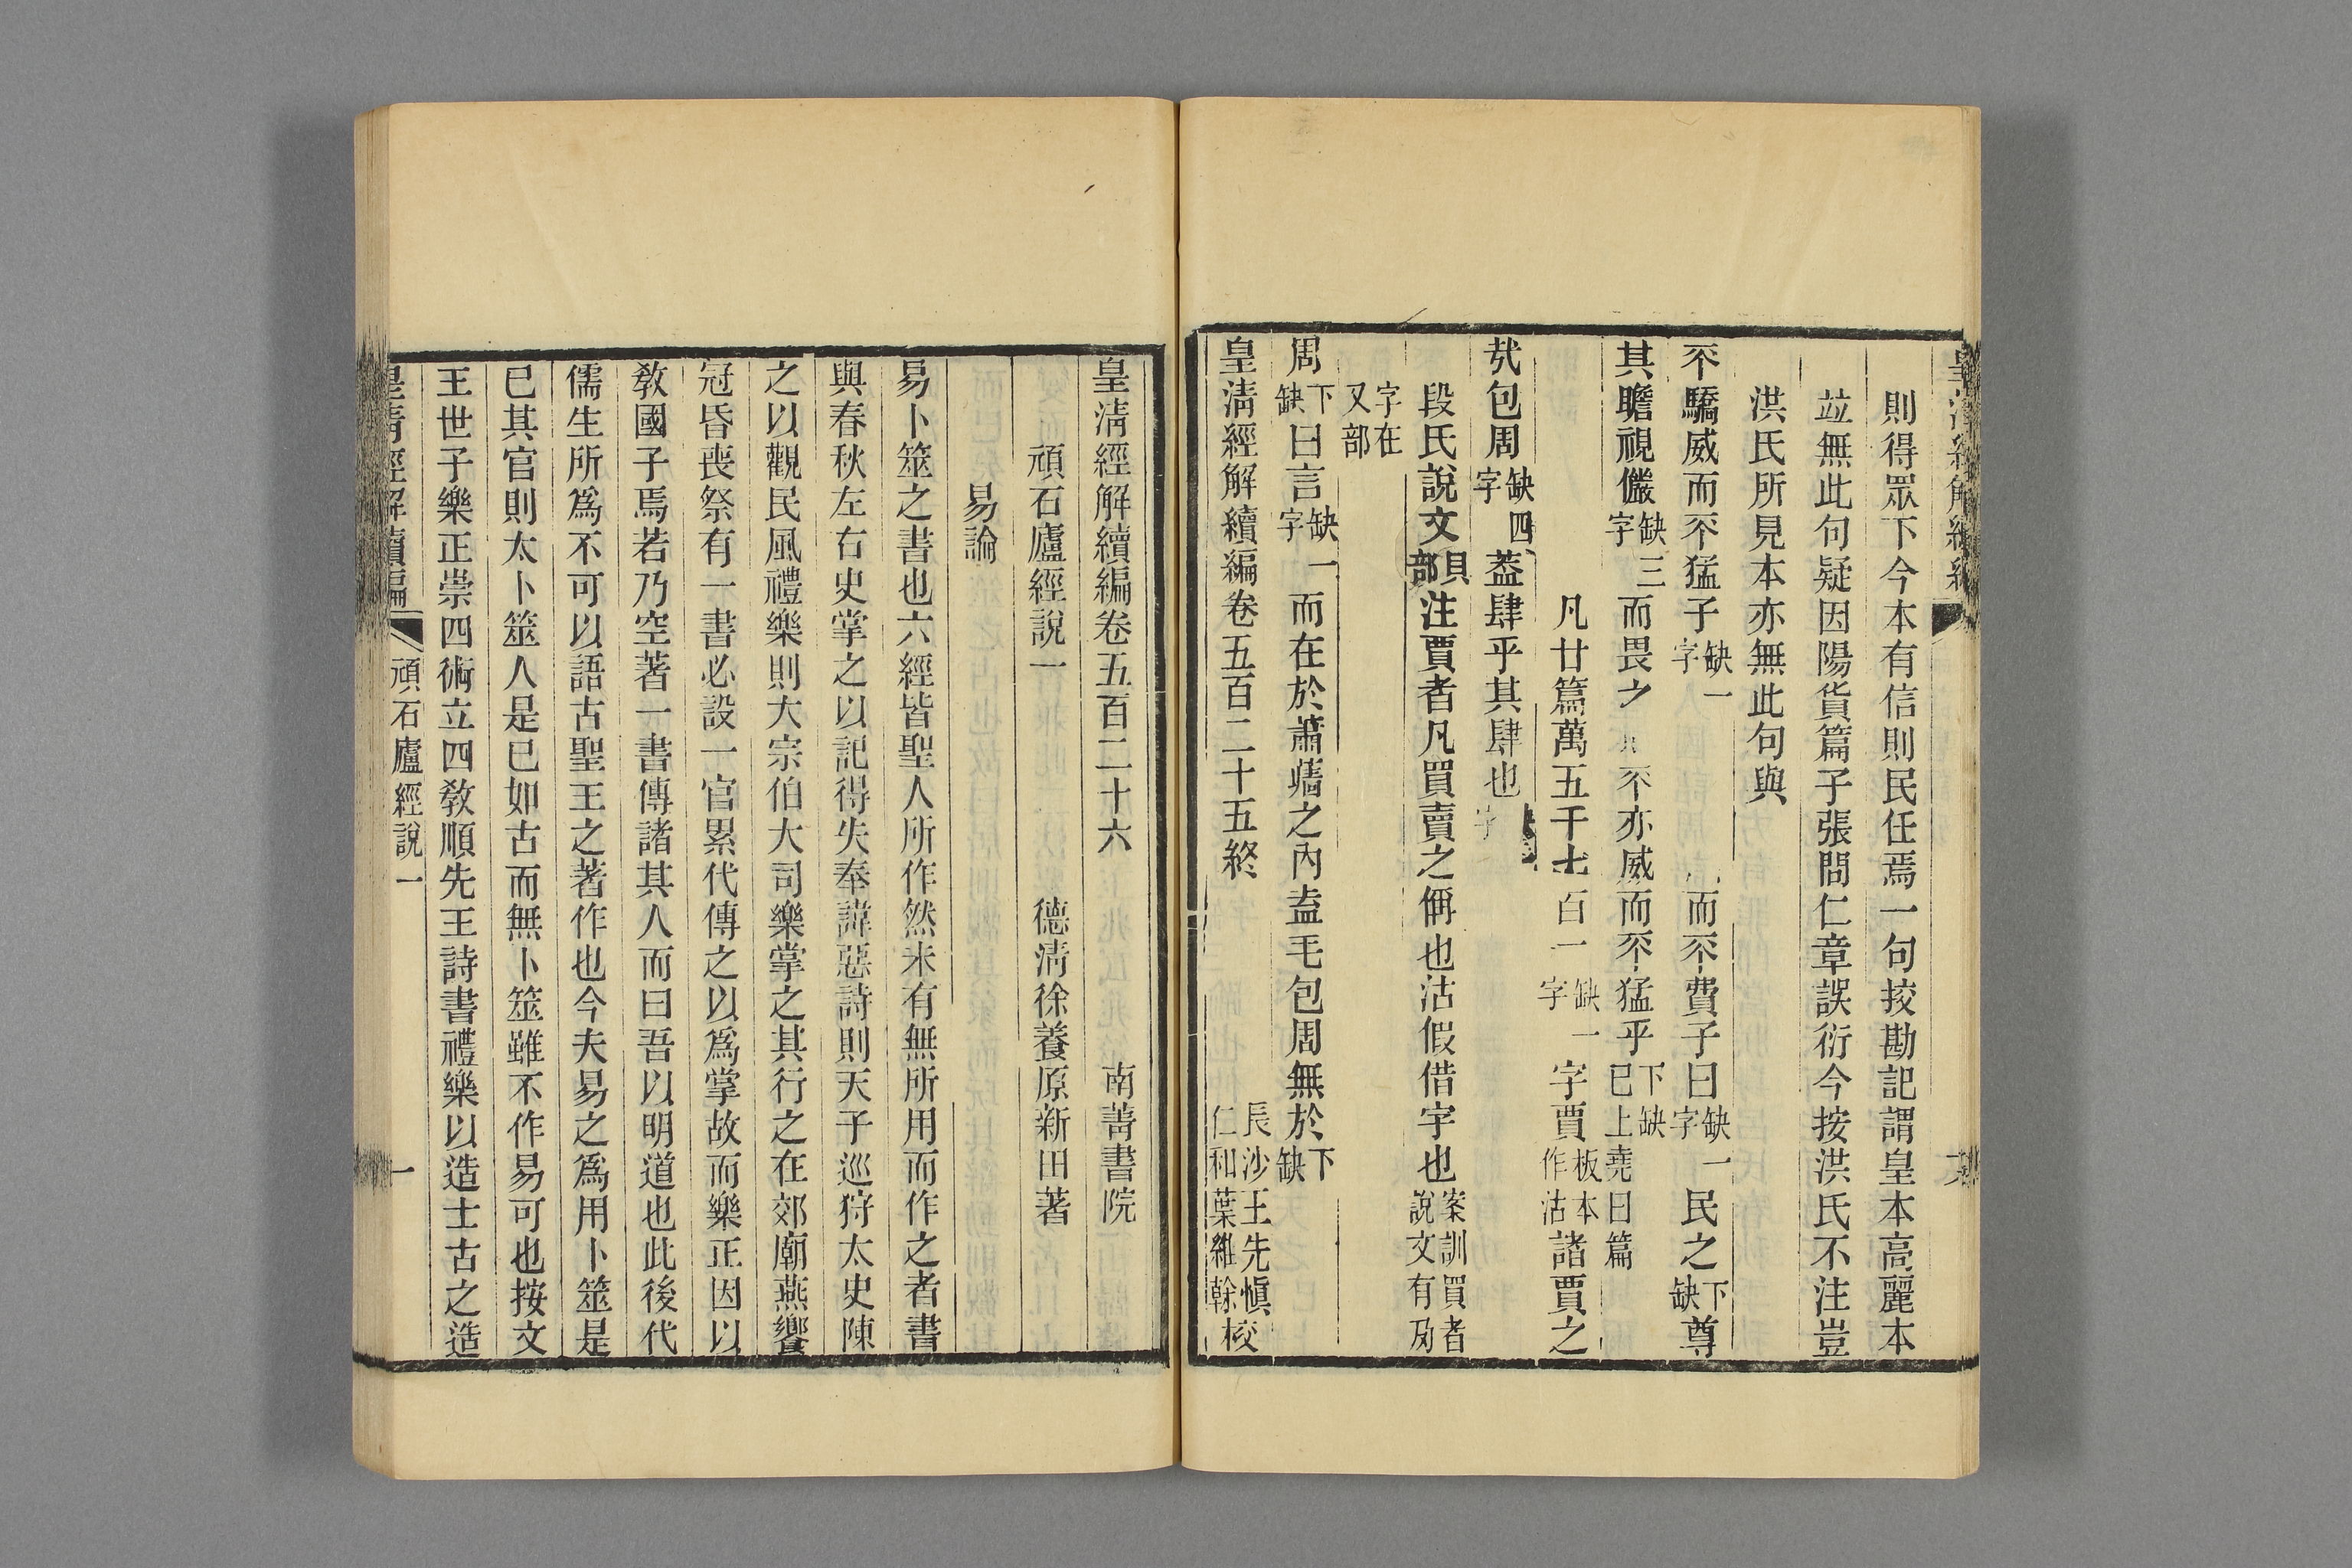 則得眾下今本有信則民任焉一句挍勘記謂皇本高麗本
竝無此句疑因陽貨篇子張問仁章誤衍今按洪氏不注豈
洪氏所見本亦無此句與
不驕威而不猛子缺一字
而不費子曰缺一字民之下缺尊
其瞻視儼缺三字而畏之
不亦威而不猛乎下缺已上堯曰篇
凡廿篇萬五千七百一缺一字字賈板本作沽諸賈之
㢤包周缺四字葢肆乎其肆也
段氏說文貝部注賈者凡買賣之偁也沽假借字也案訓買者說文有夃
字在又部
周下缺曰言缺一字而在於蕭牆之內盍毛包周無於下缺
皇淸經解續編卷五百二十五終
長沙王先愼
仁和葉維幹校
皇淸經解續編卷五百二十六
南菁書院
頑石廬經說一
德淸徐養原新田著
易論
易卜筮之書也六經皆聖人所作然未有無所用而作之者書
與春秋左右史掌之以記得失奉諱惡詩則天子巡狩太史陳
之以觀民風禮樂則大宗伯大司樂掌之其行之在郊廟燕饗
冠昏喪祭有一書必設一官累代傳之以爲掌故而樂正因以
敎國子焉若乃空著一書傳諸其人而曰吾以明道也此後代
儒生所爲不可以語古聖王之著作也今夫易之爲用卜筮是
已其官則太卜筮人是已如古而無卜筮雖不作易可也按文
王世子樂正崇四術立四敎順先王詩書禮樂以造士古之造
皇淸經解續編
頑石廬經說一
一